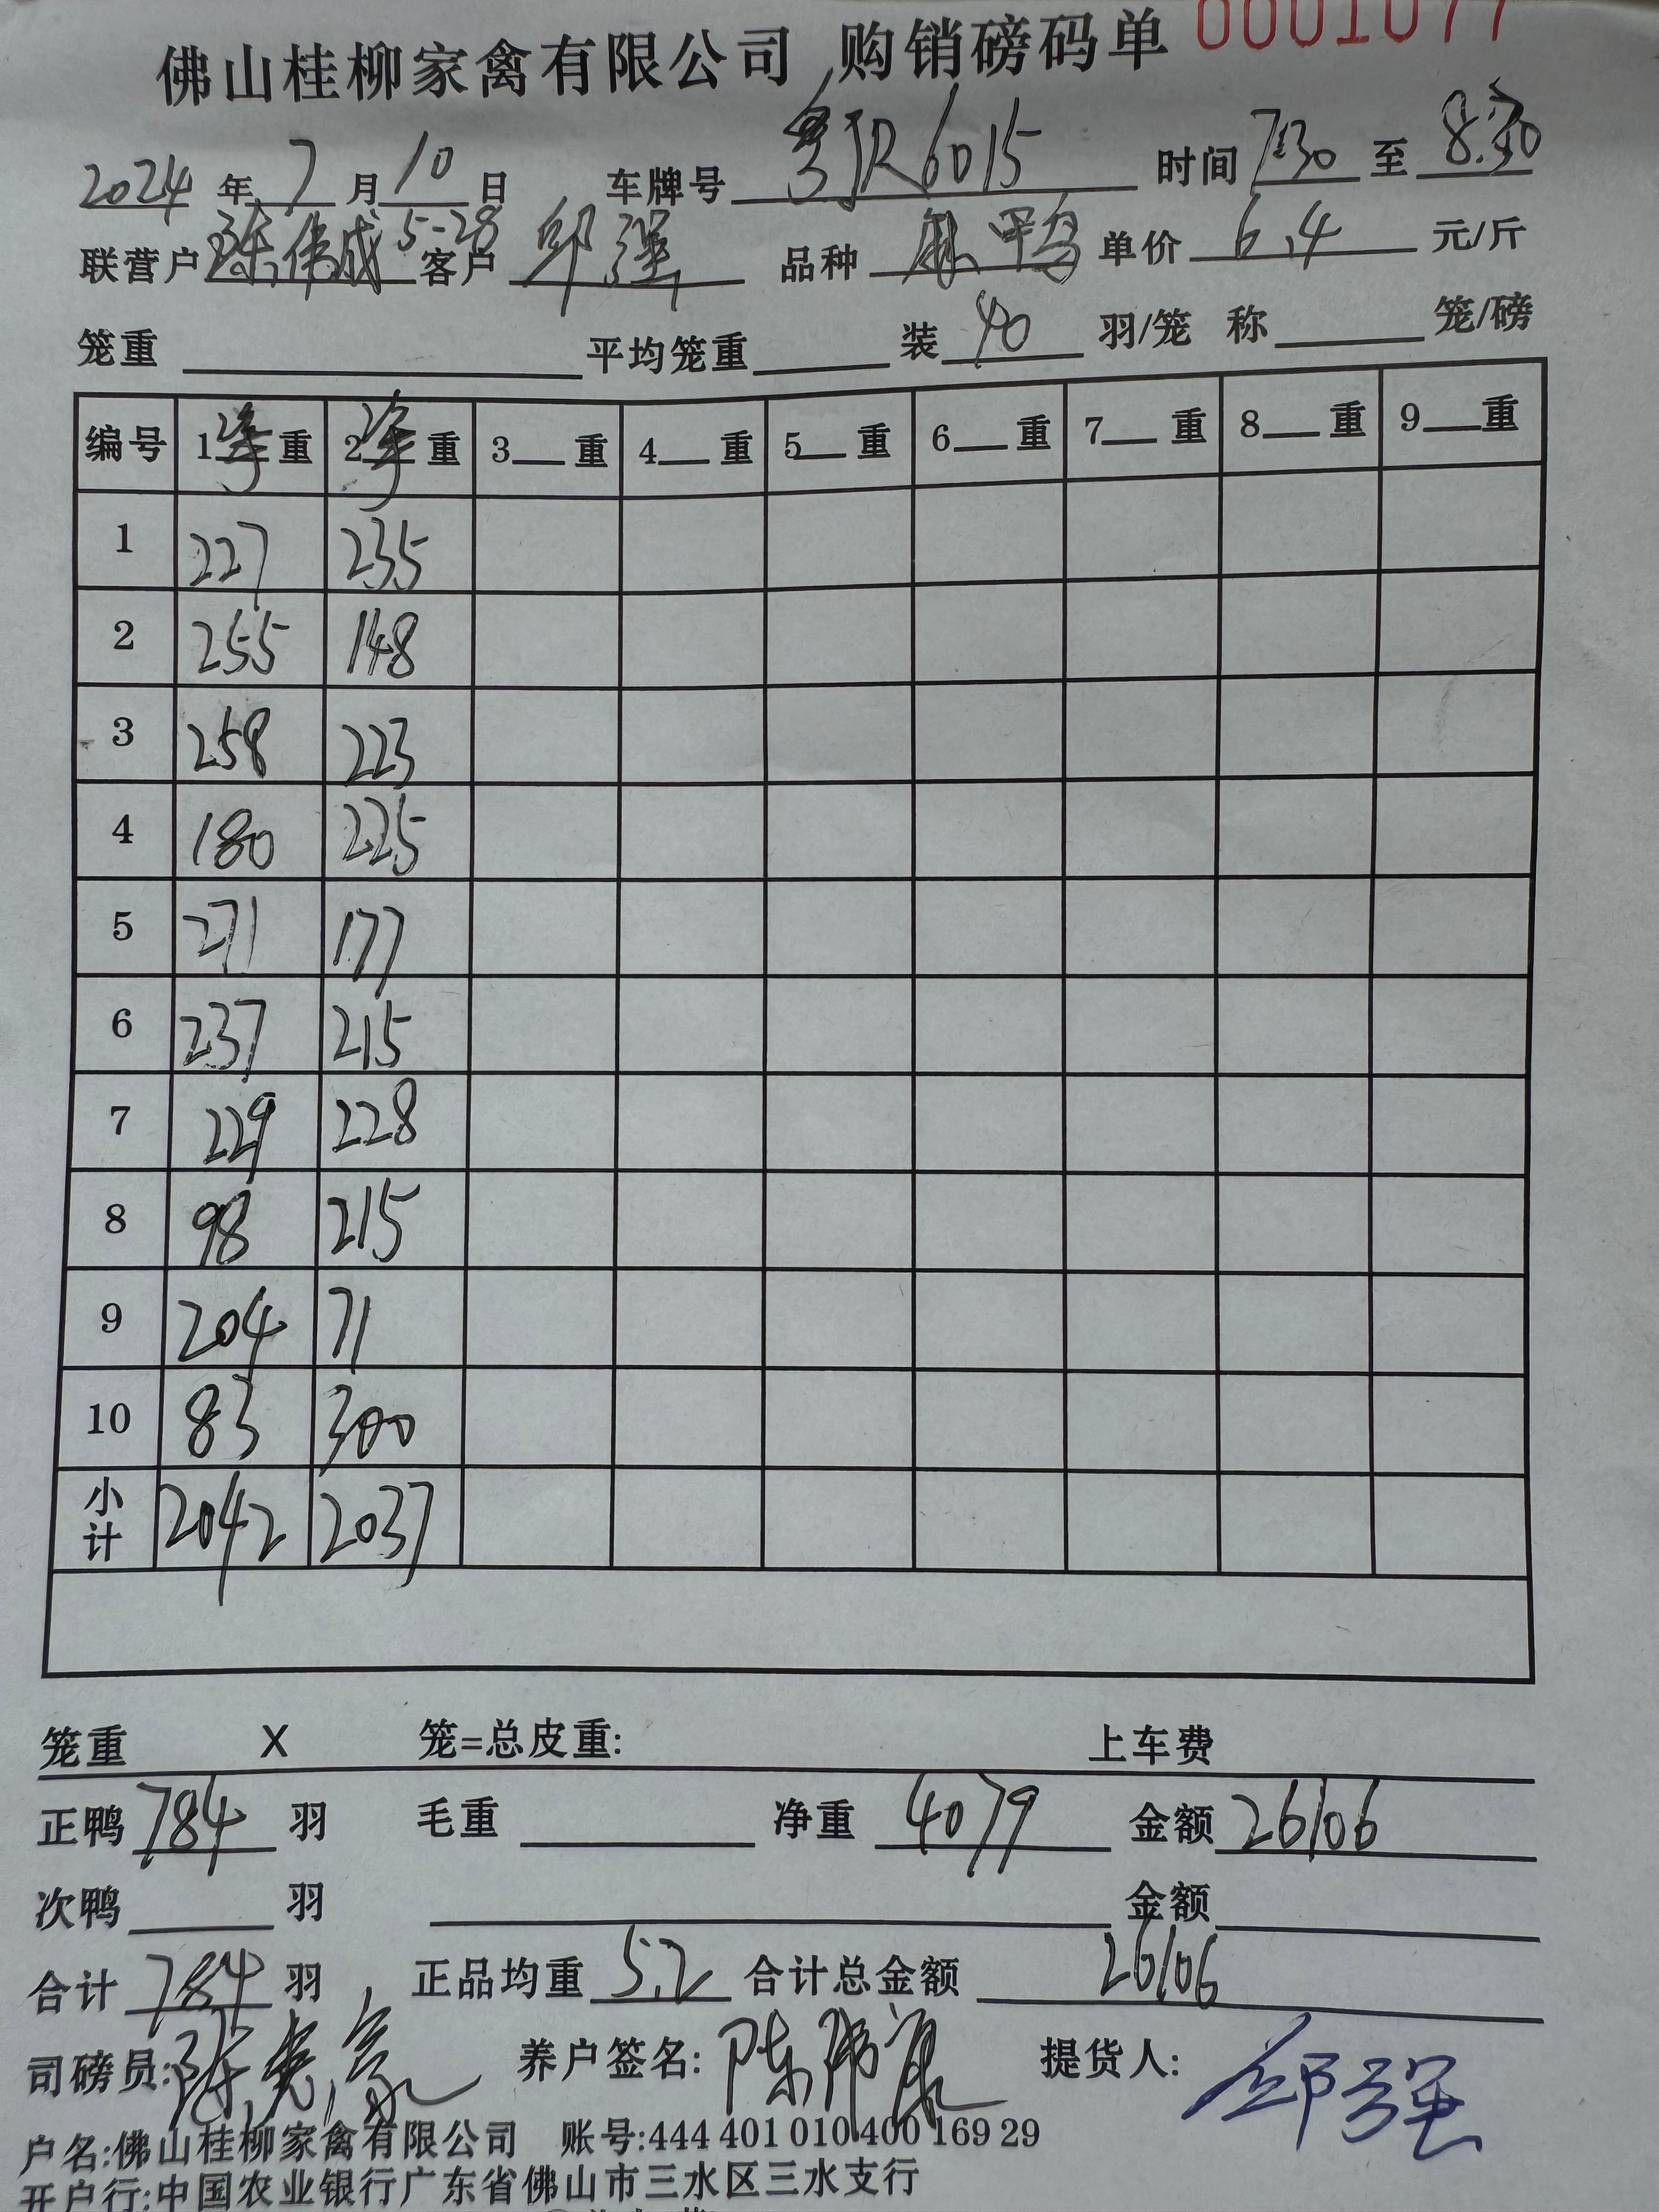 佛山桂柳家禽有限公司 购销磅码单 0001077
2024 年 7 月 10 日 车牌号 粤JR6015 时间 7:30 至 8:30
联营户 陈伟成 5-28 客户 邱强 品种 麻鸭 单价 6.4 元/斤
笼重 平均笼重 装 40 羽/笼 称 笼/磅
编号 1 净 重 2 净 重 3 重 4 重 5 重 6 重 7 重 8 重 9 重
1 227 235
2 255 148
3 258 223
4 180 225
5 271 177
6 237 215
7 229 228
8 98 215
9 204 71
10 83 300
小计 2042 2037
笼重 X 笼=总皮重: 上车费
正鸭 784 羽 毛重 净重 4079 金额 26106
次鸭 羽 金额
合计 784 羽 正品均重 5.2 合计总金额 26106
司磅员: 养户签名: 提货人: 邱强
户名:佛山桂柳家禽有限公司 账号:444 401 010 400 169 29
开户行:中国农业银行广东省佛山市三水区三水支行